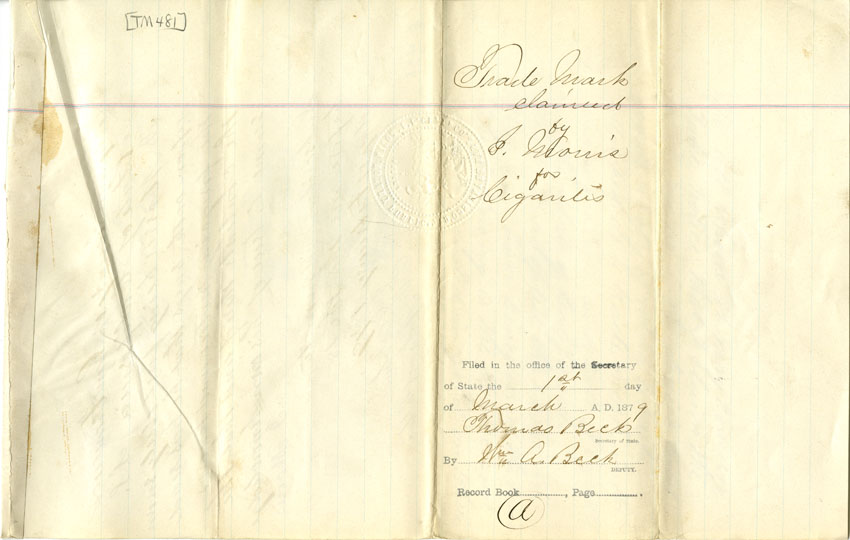 [TM481]
Trade Mark
claimed
by
I. Morris
for
Cigarites
Filed in the office of the Secretary
of State the 1st day
of March A. D. 1879
Thomas Beck
Secretary of State.
By Wm A. Beck
DEPUTY.
Record Book , Page .
A